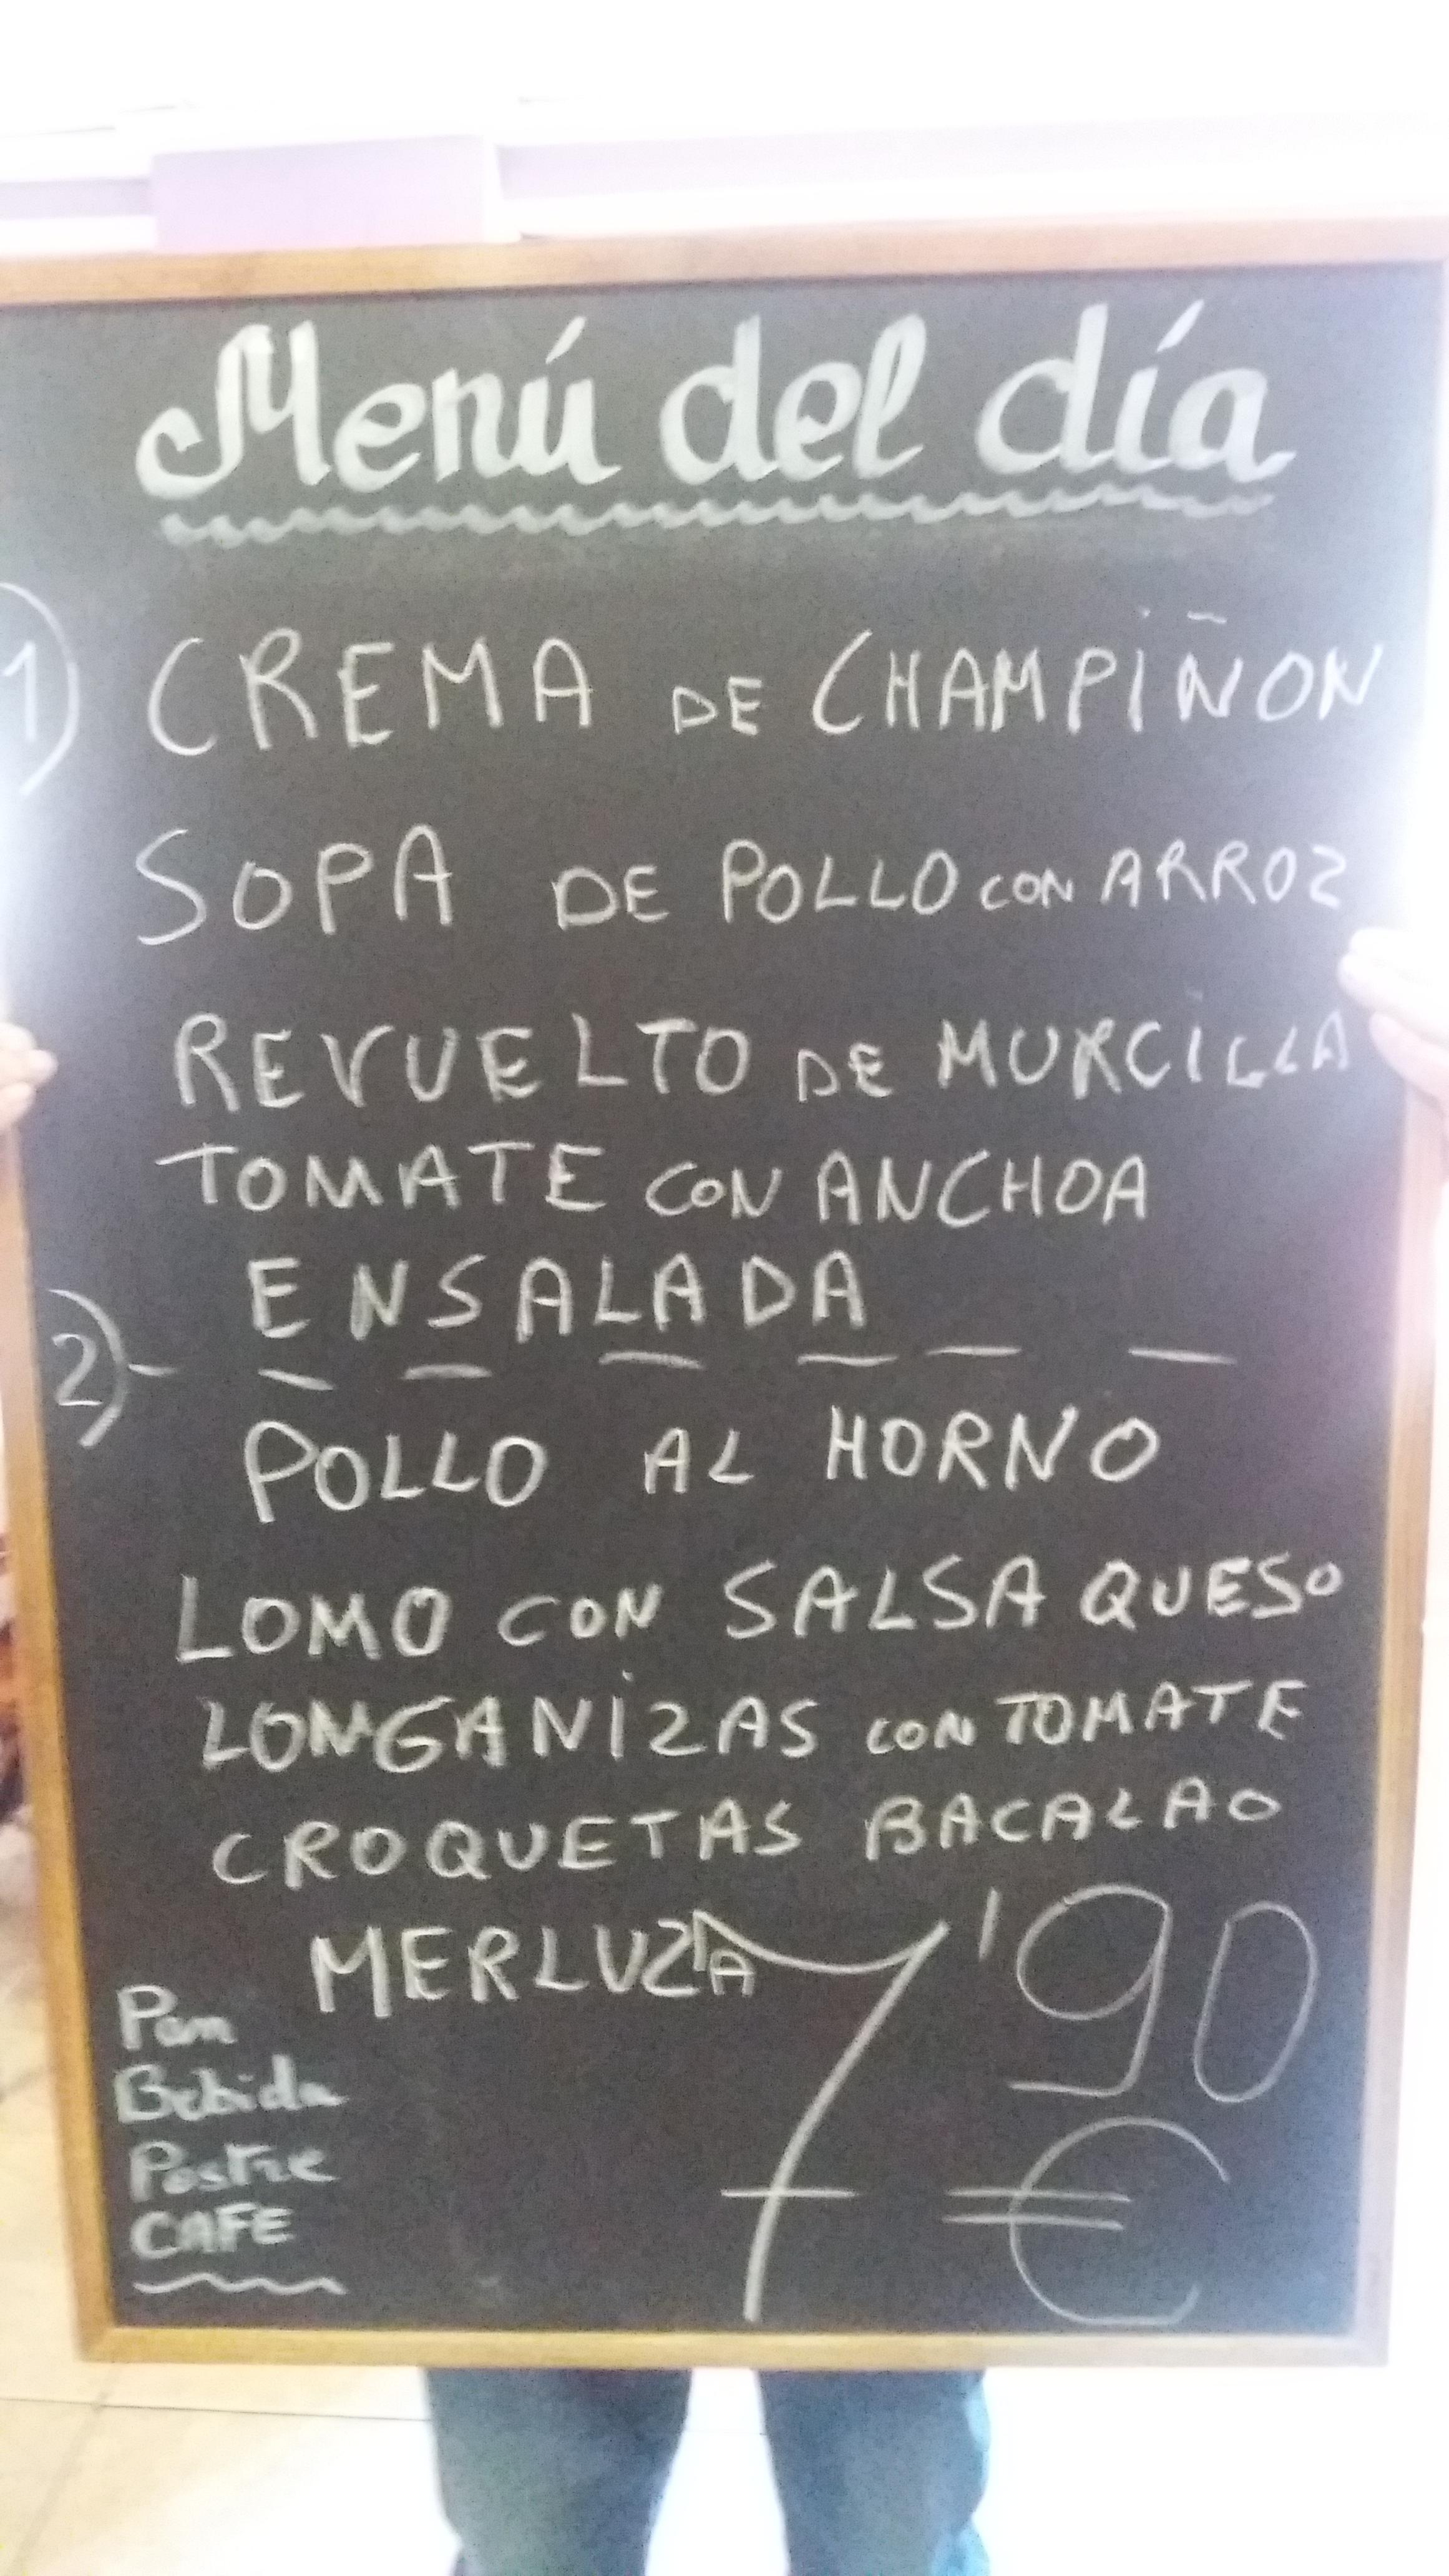 Menú del día
1) CREMA DE CHAMPIÑON
SOPA DE POLLO CON ARROZ
REVUELTO DE MURCILLA
TOMATE CON ANCHOA
ENSALADA
2)
POLLO AL HORNO
LOMO CON SALSA QUESO
LONGANIZAS CON TOMATE
CROQUETAS BACALAO
MERLUZA
7'90 €
Pan
Bebida
Postre
CAFE